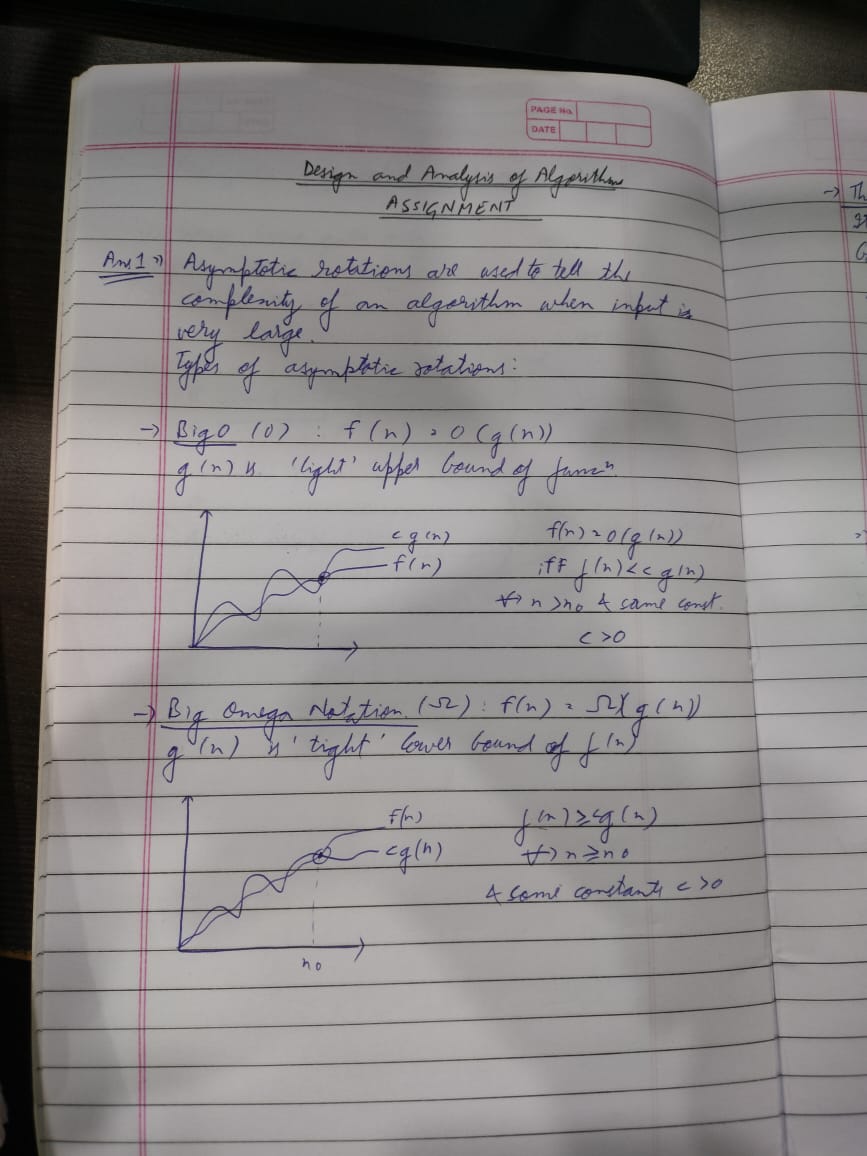 PAGE No.
DATE
Design and Analysis of Algorithm
ASSIGNMENT
Ans 1 → Asymptotic notations are used to tell the
complexity of an algorithm when input is
very large.
Types of asymptotic notations:
→ Big O (O) : f(n) = O(g(n))
g(n) is 'tight' upper bound of funcⁿ.
c g(n)
f(n)
f(n) = O(g(n))
iff f(n) < c g(n)
∀ n > n₀ & some const.
c > 0
→ Big Omega Notation (Ω) : f(n) = Ω(g(n))
g(n) is 'tight' lower bound of f(n)
f(n)
cg(n)
n₀
f(n) ≥ cg(n)
∀ n ≥ n₀
& some constants c > 0
→ Th